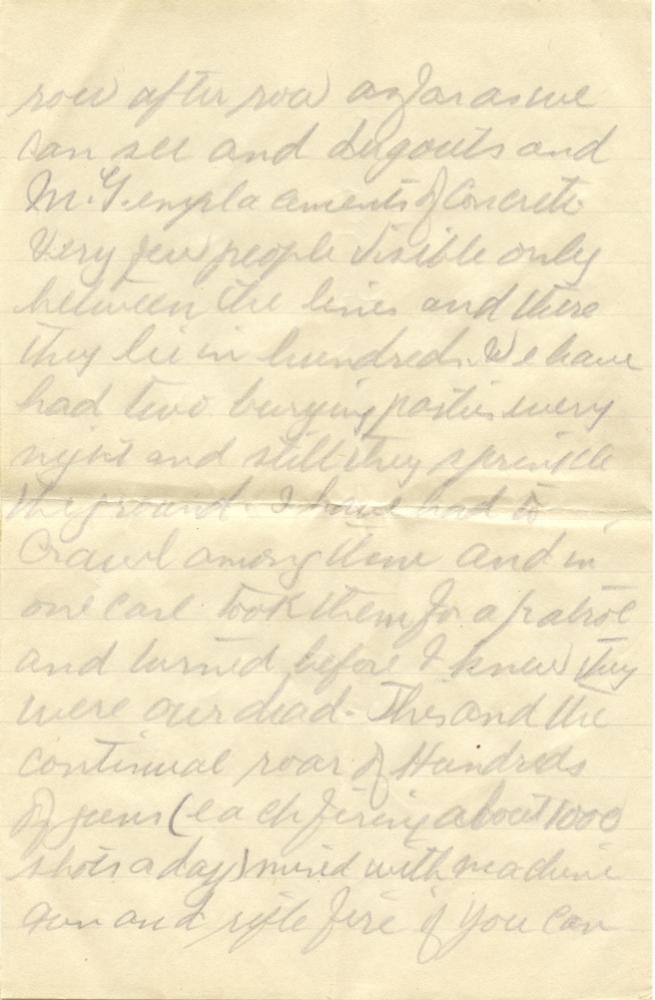 row after row as far as we
can see and dugouts and
M.G. emplacements of Concrete
Very few people visible only
between the lines and there
they lie in hundreds. We have
had two burying parties every
night and still they sprinkle
the ground. I have had to
Crawl among them and in
one case took them for a patrol
and turned before I knew they
were our dead - This and the
continual roar of Hundreds
of guns (each firing about 1000
shots a day) mixed with machine
gun and rifle fire if you can